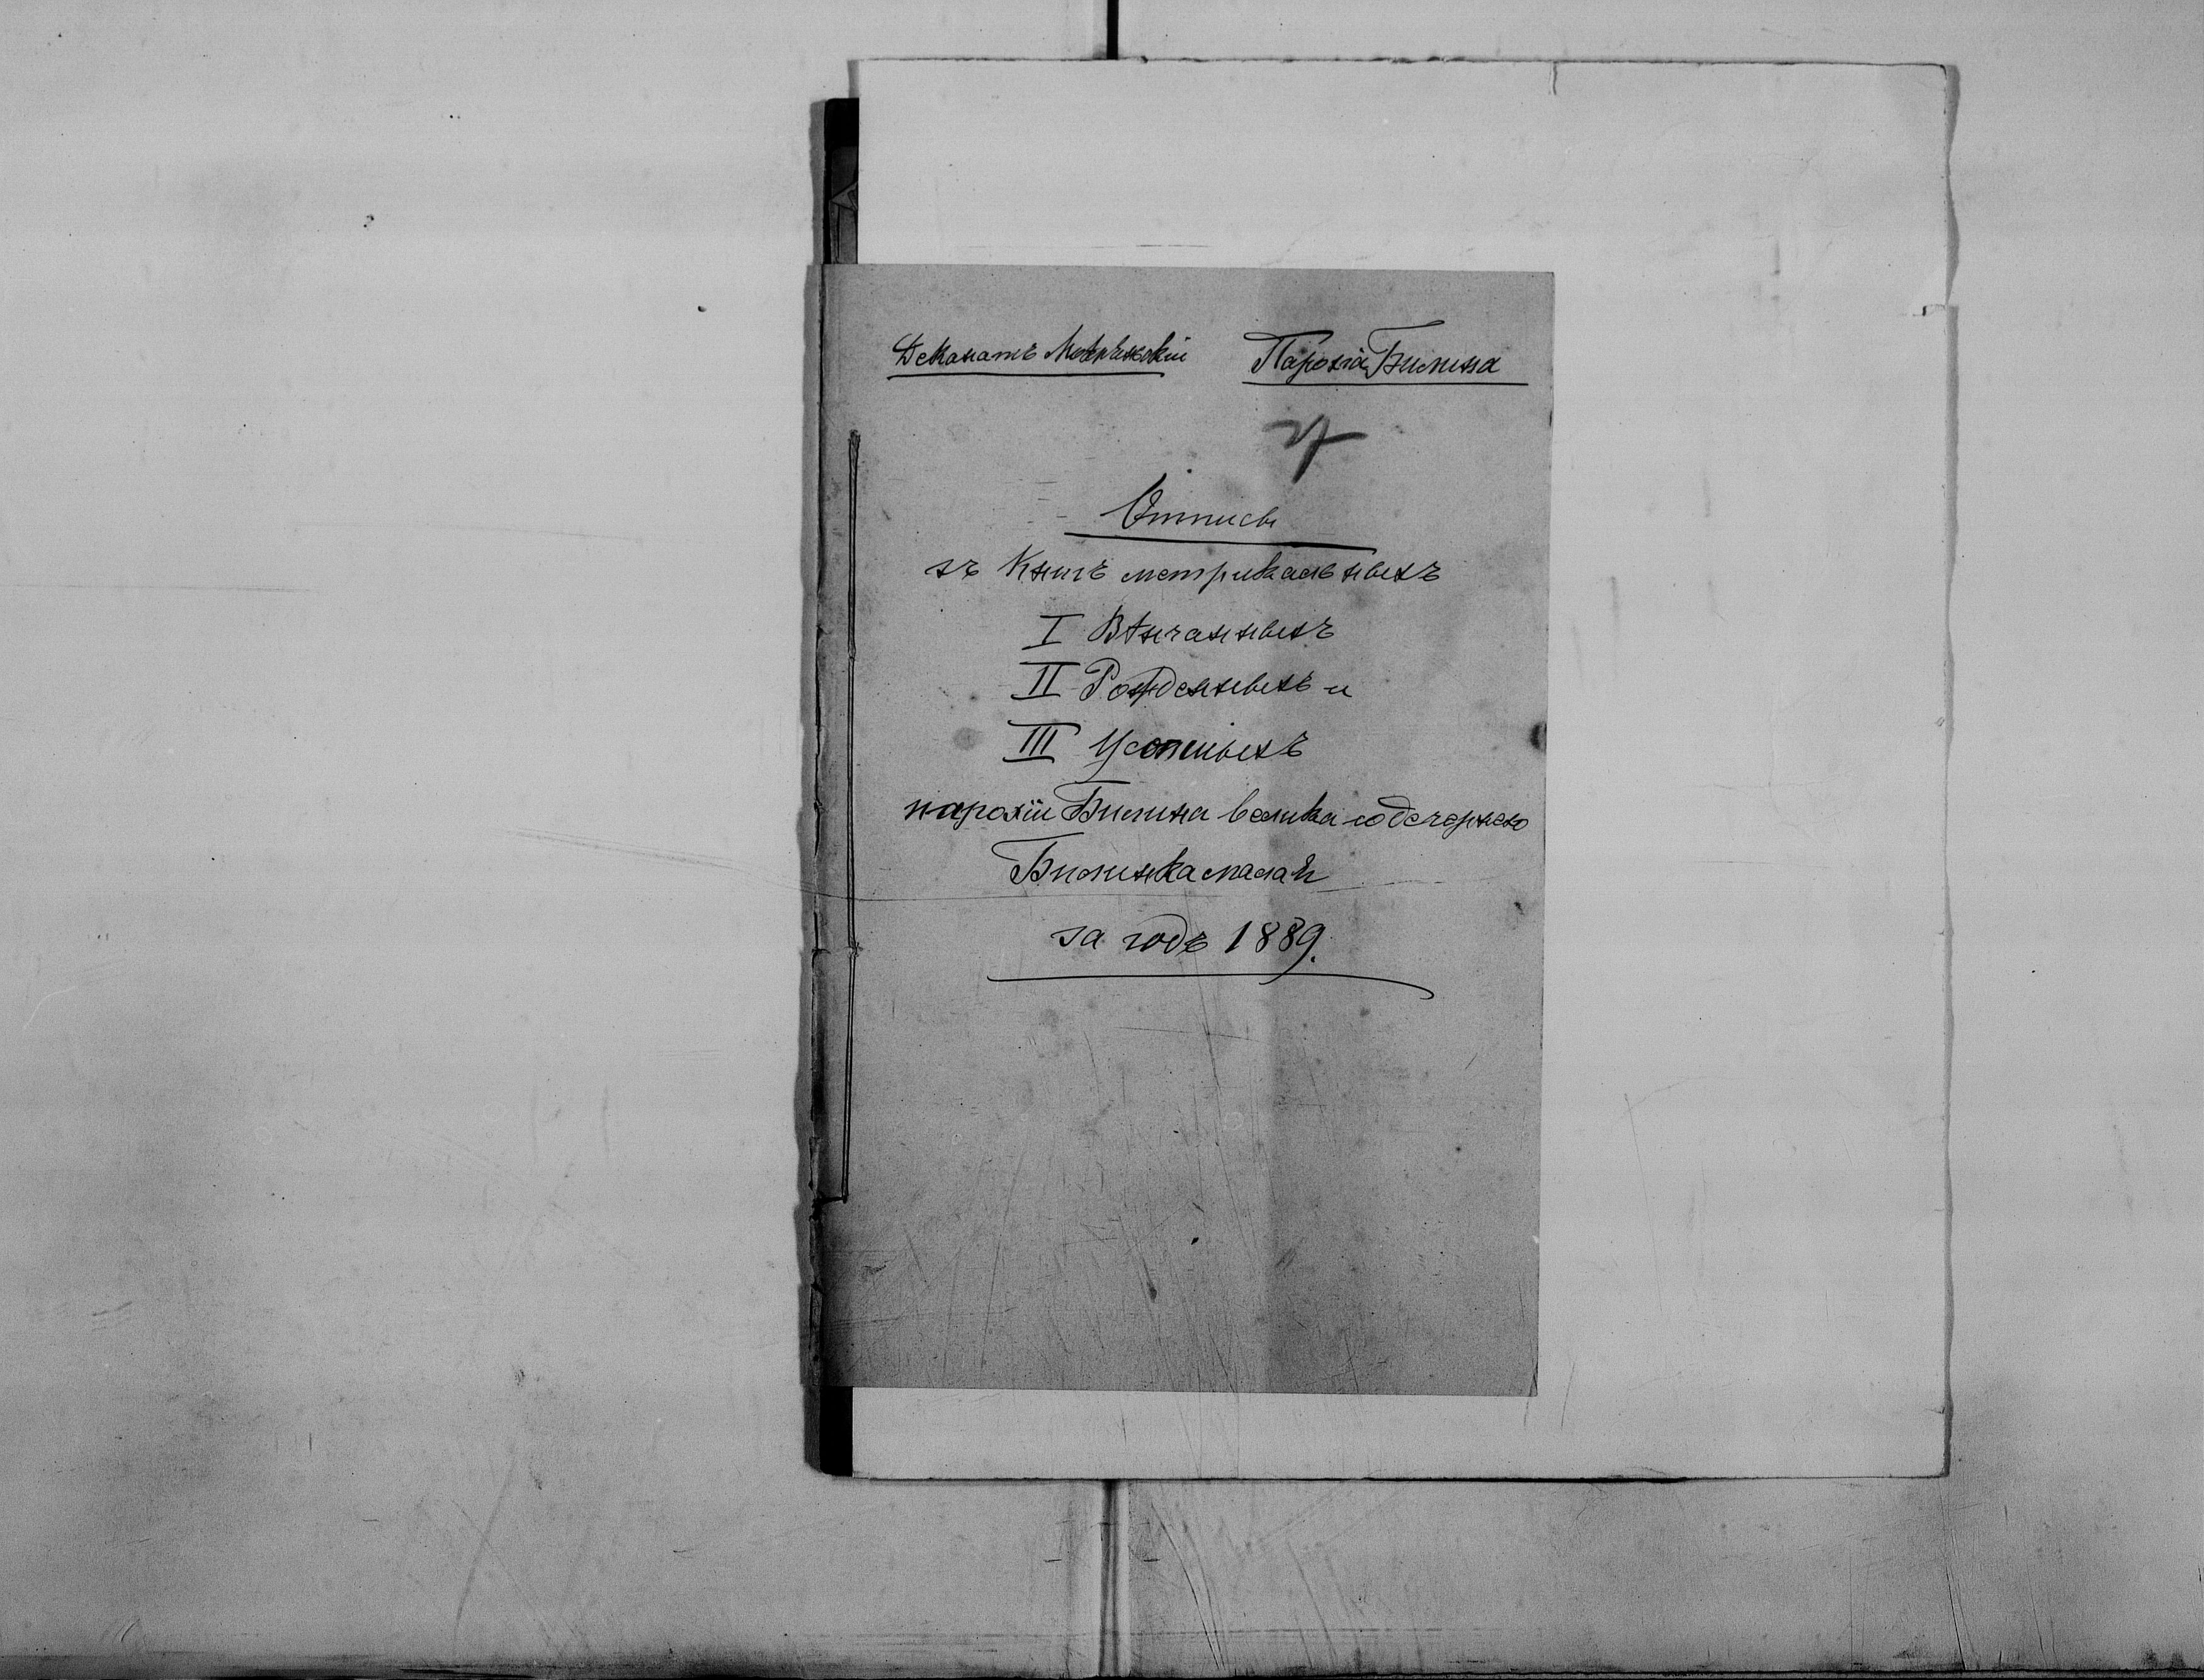 Деканатъ Мокрянскій Парохія Билина
Отпись
зъ Книгъ метрикальныхъ
I Вѣнчанныхъ
II Рожденныхъ и
III Усопшихъ
парохіи Билина велика со дочернею
Билинка малай
за годъ 1889.